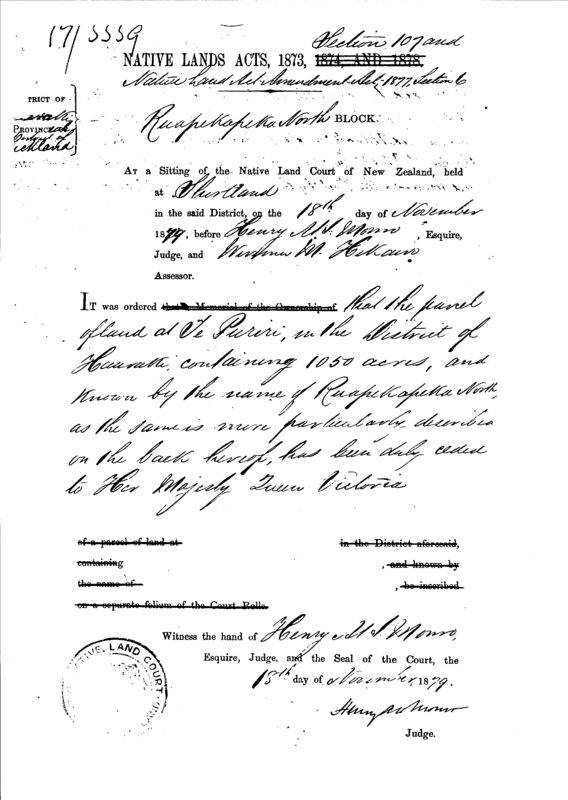 17/3339
Section 107 and
NATIVE LANDS ACTS, 1873, 1874, AND 1878.
Native Land Act Amendment Act, 1877, Section 6
TRICT OF
PROVINCE
Ruapekapeka North BLOCK.
AT a Sitting of the Native Land Court of New Zealand, held
at Shortland
in the said District, on the 18th day of November
1879, before Henry Monro, Esquire,
Judge, and Hikairo
Assessor.
IT was ordered that a Memorial of the Ownership of that the parcel
of land at Te Puriri, in the District of
Hauraki, containing 1050 acres, and
known by the name of Ruapekapeka North,
as the same is more particularly described
on the back hereof, has been duly ceded
to Her Majesty Queen Victoria
of a parcel of land at in the District aforesaid,
containing , and known by
the name of , be inscribed
on a separate folium of the Court Rolls.
Witness the hand of Henry Monro,
Esquire, Judge. and the Seal of the Court, the
18th day of November, 1879.
Henry Monro
Judge.
NATIVE LAND COURT